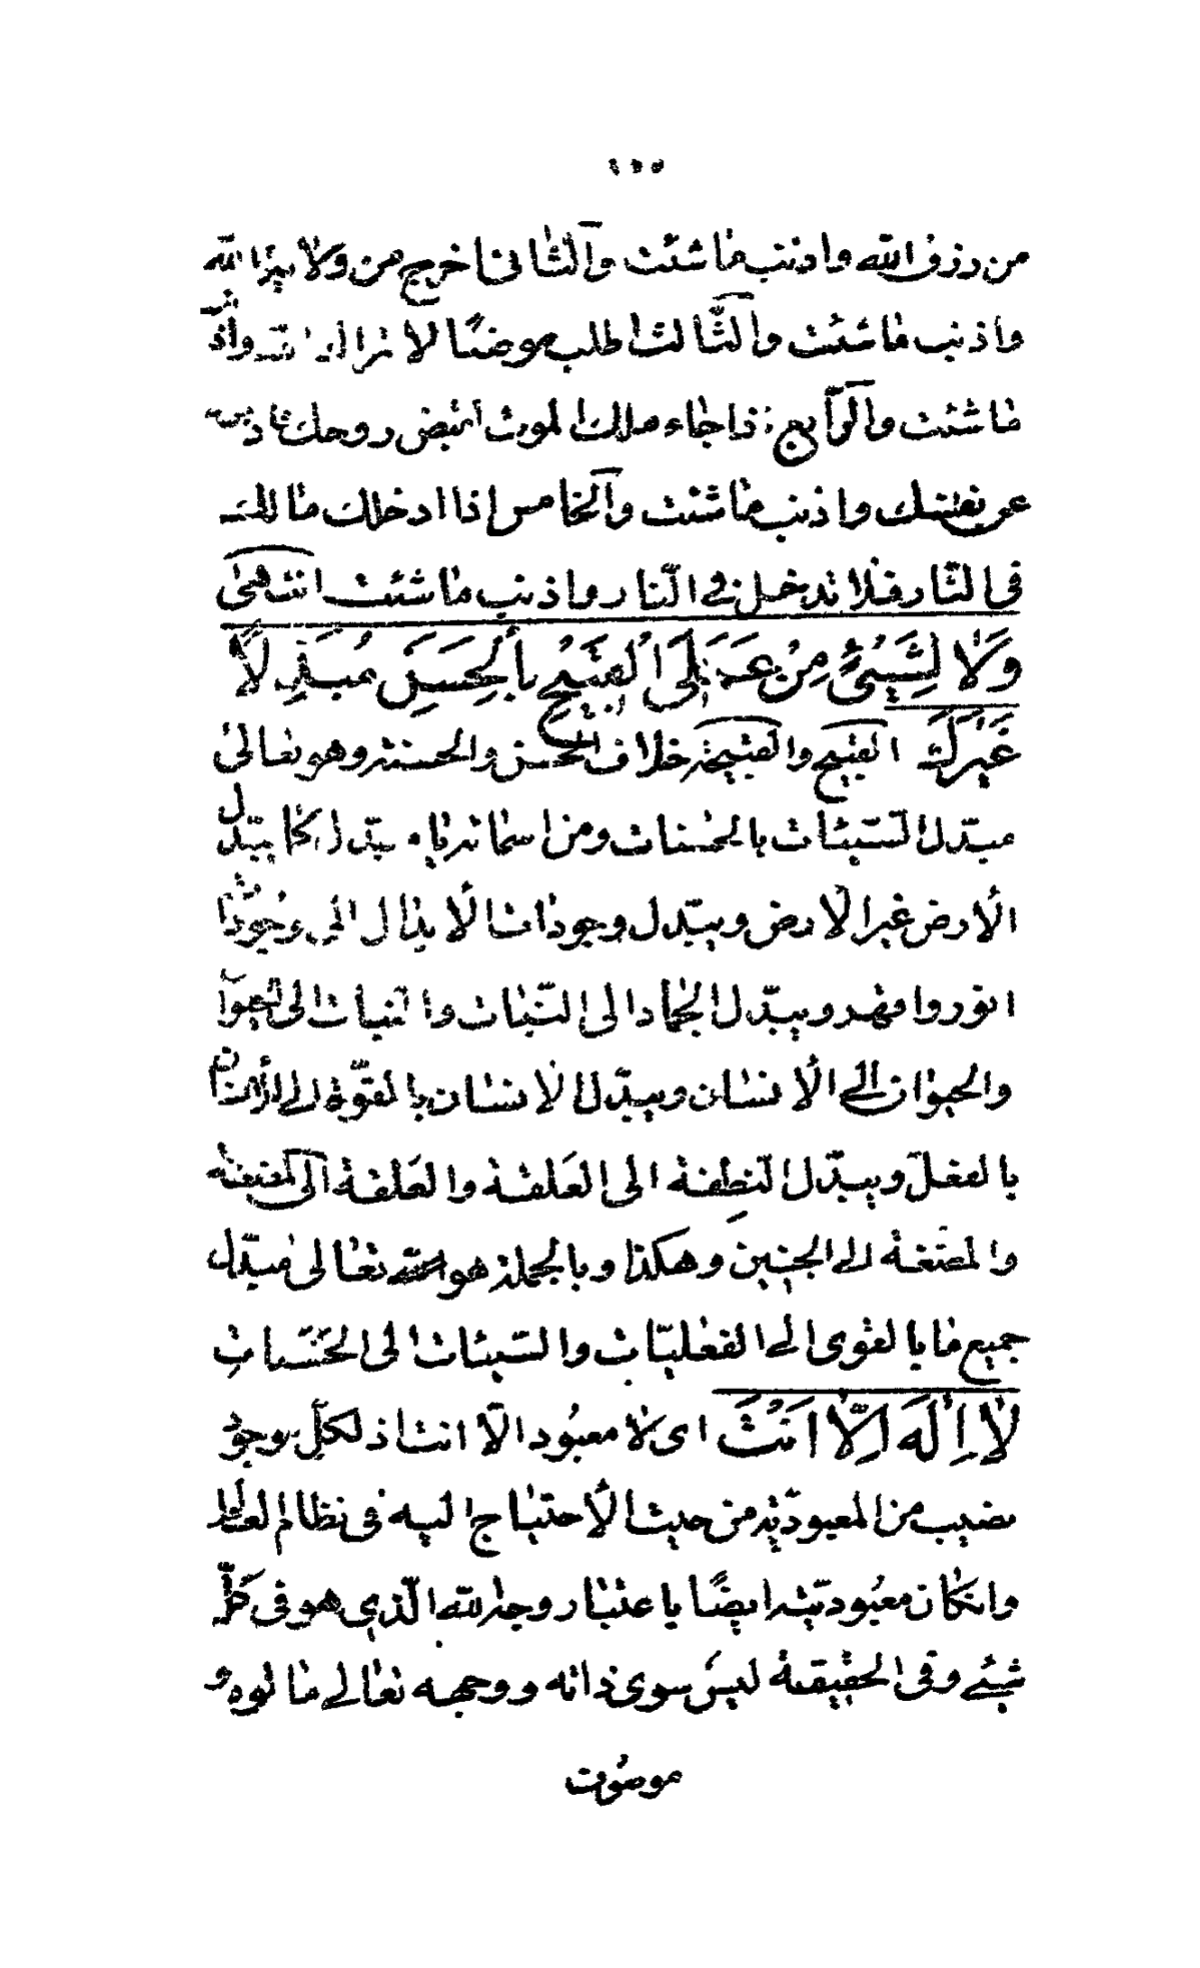 من رزق الله واذنب ما شئت والثانى اخرج من ولاية الله
واذنب ما شئت والثالث اطلب موضعًا لا يراك الله واذنب
ما شئت والرابع اذا جاء ملك الموت ليقبض روحك فادفعه
عن نفسك واذنب ما شئت والخامس اذا ادخلك مالك
فى النّار فلا تدخل فى النّار واذنب ما شئت انتهى
وَلَا لِشَيْئٍ مِنْ عَمَلِىَ الْقَبيْحِ بِالْحَسَنِ مُبَدِّلًا
غَيْرَكَ القبيح والقبيحة خلاف الحسن والحسنة وهو تعالى
مبدّل السّيئات بالحسنات ومن اسمائه يا مبدّل كما يبدّل
الأرض غير الارض ويبدّل وجوداتنا الى وجودات
انور واقهر ويبدّل الجماد الى النّبات والنبات الى الحيوان
والحيوان الى الأنسان ويبدّل الانسان بالقوّة الى الأنسان
بالفعل ويبدّل النطفة الى العلقة والعلقة الى المضغة
والمضغة الى الجنين وهكذا وبالجملة هو الله تعالى مبدّل
جميع ما بالقوى الى الفعليّات والسّيئات الى الحسنات
لَا اِلٰهَ اِلَّا اَنْتَ اى لا معبود الّا انت اذ لكلّ موجود
نصيب من المعبوديّة من حيث الأحتياج اليه فى نظام العالم
وانكان معبوديّته ايضًا باعتبار وجه الله الّذى هو فى كلّ
شيئ وفى الحقيقة ليس سوى ذاته ووجهه تعالى مالوه و
موصوف